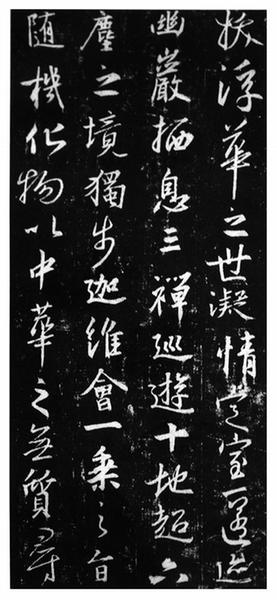 拔浮華之世凝情定室匿迹
幽巖栖息三禪巡遊十地超六
塵之境獨步迦維會一乘之旨
随機化物以中華之無質尋